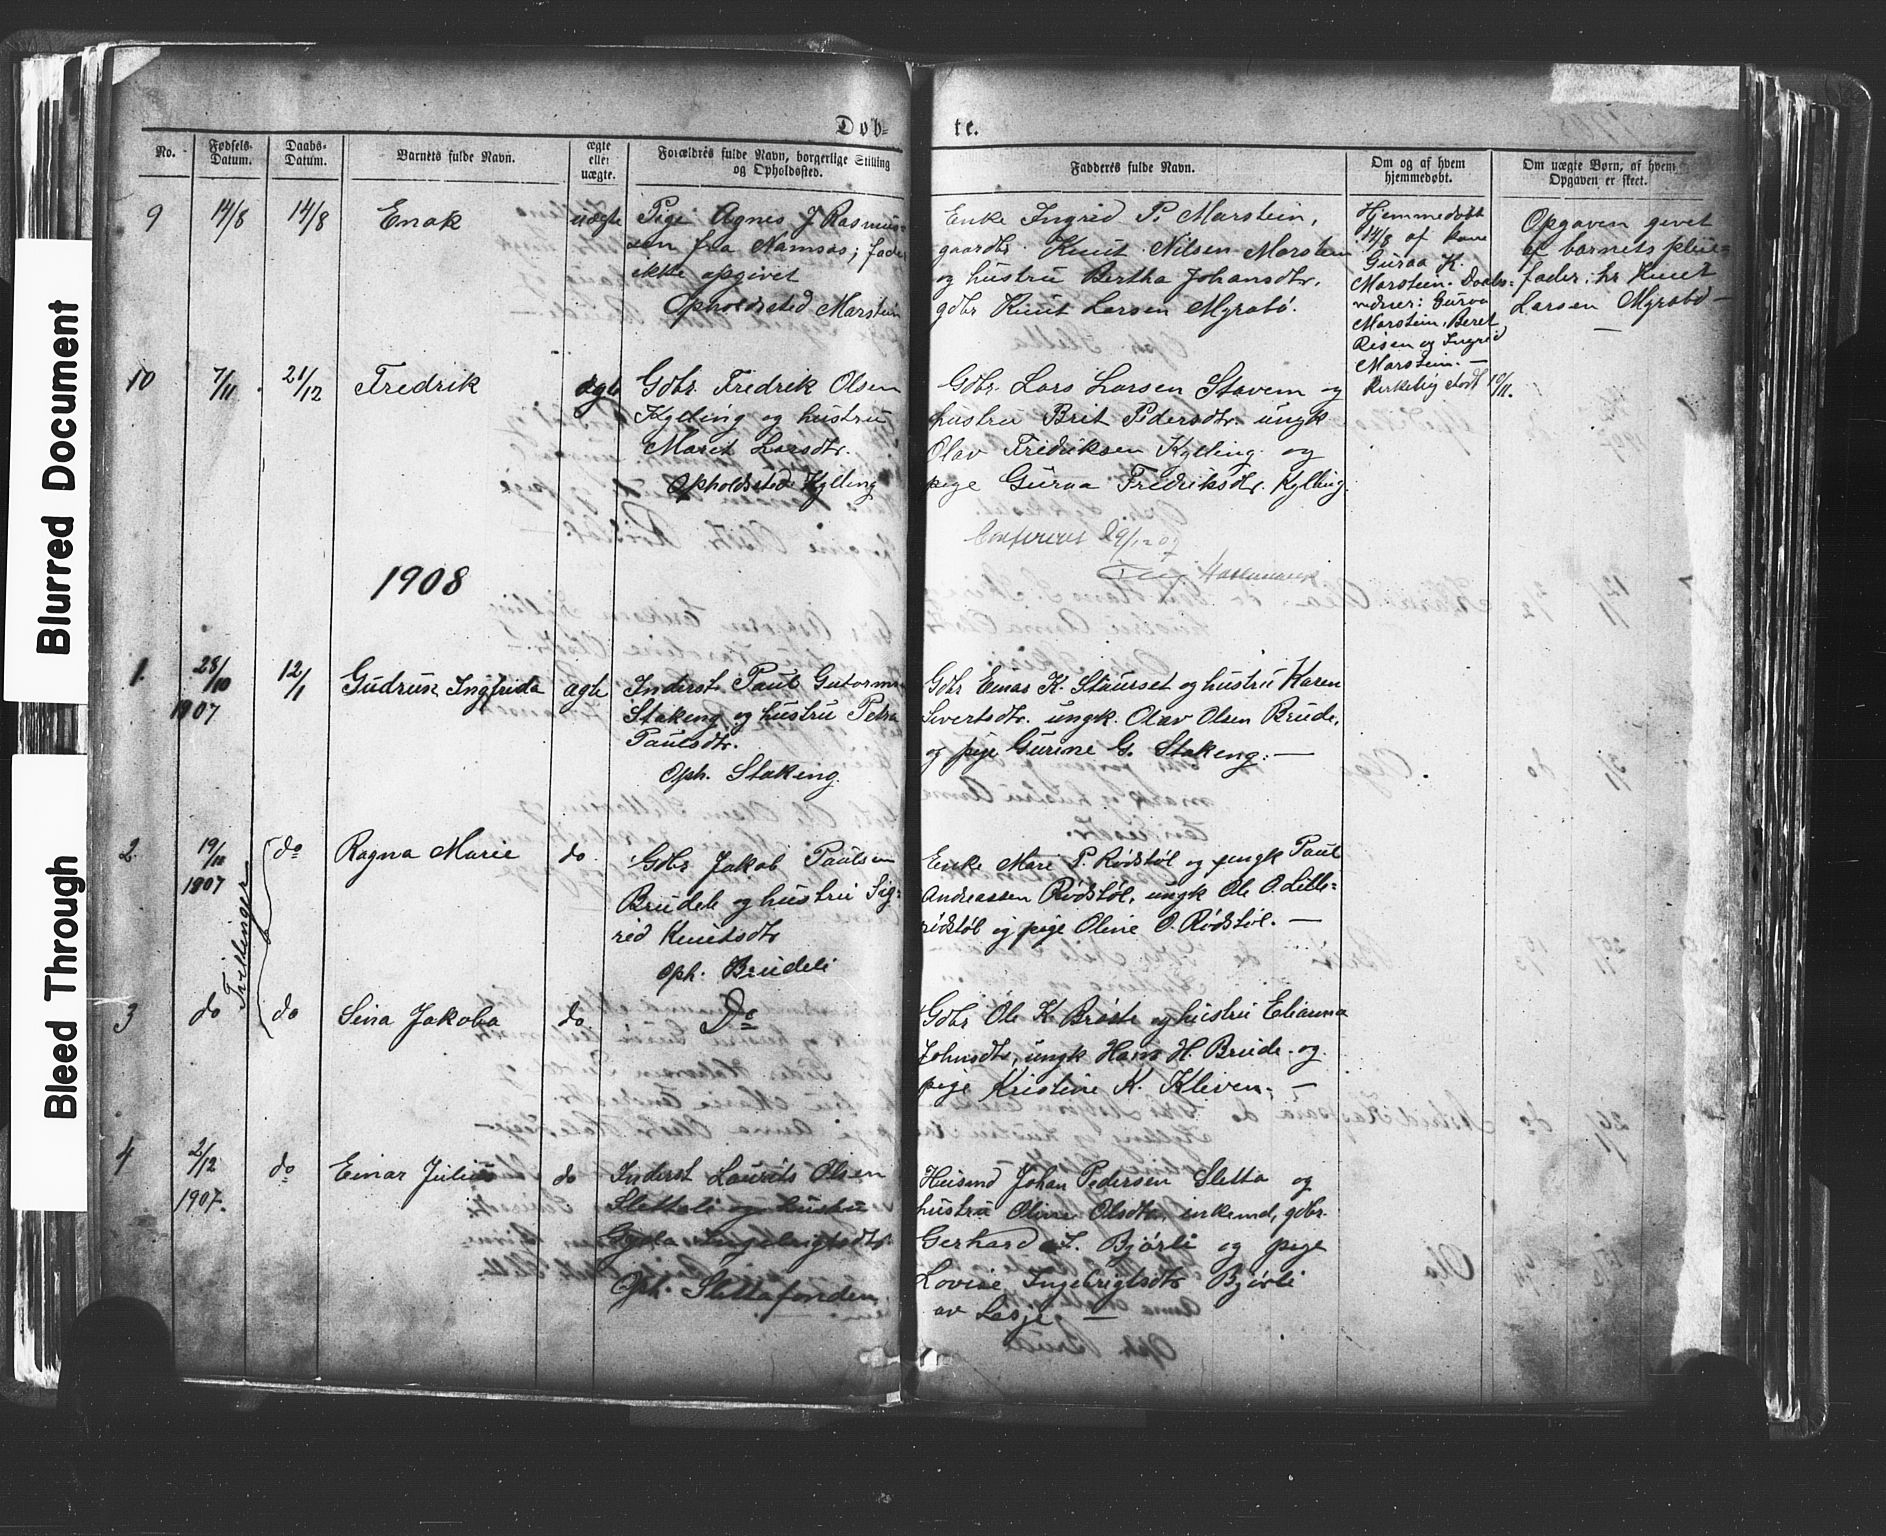 Blurred Document
Bleed Through
Døb-
te.
No.
Fødsels-
Datum.
Daabs-
Datum.
Barnets fulde Navn.
ægte
eller
uægte.
Forældres fulde Navn, borgerlige Stilling
og Opholdssted.
Fadderes fulde Navn.
Om og af hvem
hjemmedøbt.
Om uægte Børn, af hvem
Opgaven er skeet.
9
14/8
14/8
Enok
uægte
Pige Agnes J Rasmus-
sen fra Namsos; fader
ikke opgivet
Opholdssted Marstein
Enke Ingrid P. Marstein,
gaardbr. Knut Nilsen Marstein
og hustru Bertha Johansdtr.
gdbr Knut Larsen Myrabø.
Hjemmedøbt
14/8 af kone
Guraa K.
Marstein. Daabs-
vidner: Guraa
Marstein, Beret
Risen og Ingrid
Marstein. —
Opgaven givet
af barnets pleie-
fader, hr Knut
Larsen Myrabø —
10
7/11
21/12
Fredrik
ægte
Gdbr. Fredrik Olsen
Kylling og hustru
Marit Larsdtr.
Opholdssted Kylling
Gdbr. Lars Larsen Stavem og
hustru Brit Pedersdtr. ungk
Olav Fredriksen Kylling og
pige Guraa Fredriksdtr. Kylling.
Kirkelig stadf 10/11.
Confereret 29/12 07
1908
1.
28/10
1907
12/1
Gudrun Ingfrida
ægte
Inderst Paul Gutorms
Stakeng og hustru Petra
Paulsdtr.
Oph. Stakeng.
Gdbr Einar K. Staurset og hustru Karen
Sivertsdtr. ungk. Olav Olsen Brude,
og pige Gurine G. Stakeng. —
2
19/10
1907
Tvillinger
do
Ragna Marie
do
Gdbr Jakob Paulsen
Brudeli og hustru Sig-
rid Knutsdtr
Oph. Brudeli
Enke Mari P. Rødstøl og ungk Paul
Andreassen Rødstøl, ungk Ole O. Litle-
rødstøl og pige Oline O. Rødstøl. —
3
do
do
Sina Jakoba
do
Do
Gdbr Ole K Brøste og hustru Elianna
Johnsdtr, ungk Hans H. Brude og
pige Kristine K. Kleven; —
4
2/12
1907.
do
Einar Julius
do
Inderst Laurits Olsen
Slettali og hustru
Gyda Ingebrigtsdtr
Oph. Slettafonden
Husmd Johan Pedersen Sletta og
hustru Oline Olsdtr, enkemd, gdbr.
Gerhard I. Bjørli og pige
Lovise Ingebrigtsdtr Bjørli
av Lesje —